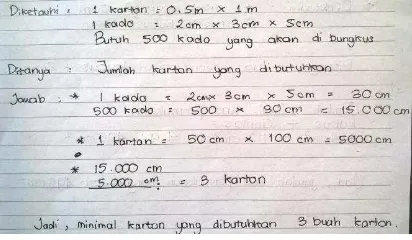 Diketahui : 1 karton = 0,5m x 1 m
1 kado = 2cm x 3cm x 5cm
Butuh 500 kado yang akan di bungkus
Ditanya : Jumlah karton yang dibutuhkan
Jawab : * 1 kado = 2cm x 3cm x 5cm = 30 cm
500 kado = 500 x 30 cm = 15.000 cm
* 1 karton = 50 cm x 100 cm = 5000 cm
* 15.000 cm
5.000 cm = 3 karton
Jadi, minimal karton yang dibutuhkan 3 buah karton.